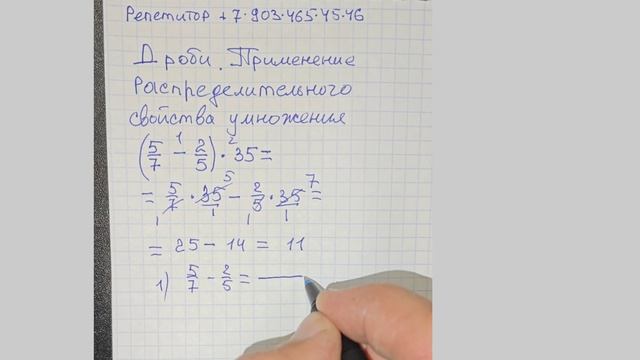 Репетитор +7·903·465·45·46
Дроби. Применение
распределительного
свойства умножения
(5/7 - 2/5) · 35 =
1 2
= 5/7 · 35/1 - 2/5 · 35/1 =
5 7
1 1 1 1
= 25 - 14 = 11
1) 5/7 - 2/5 =